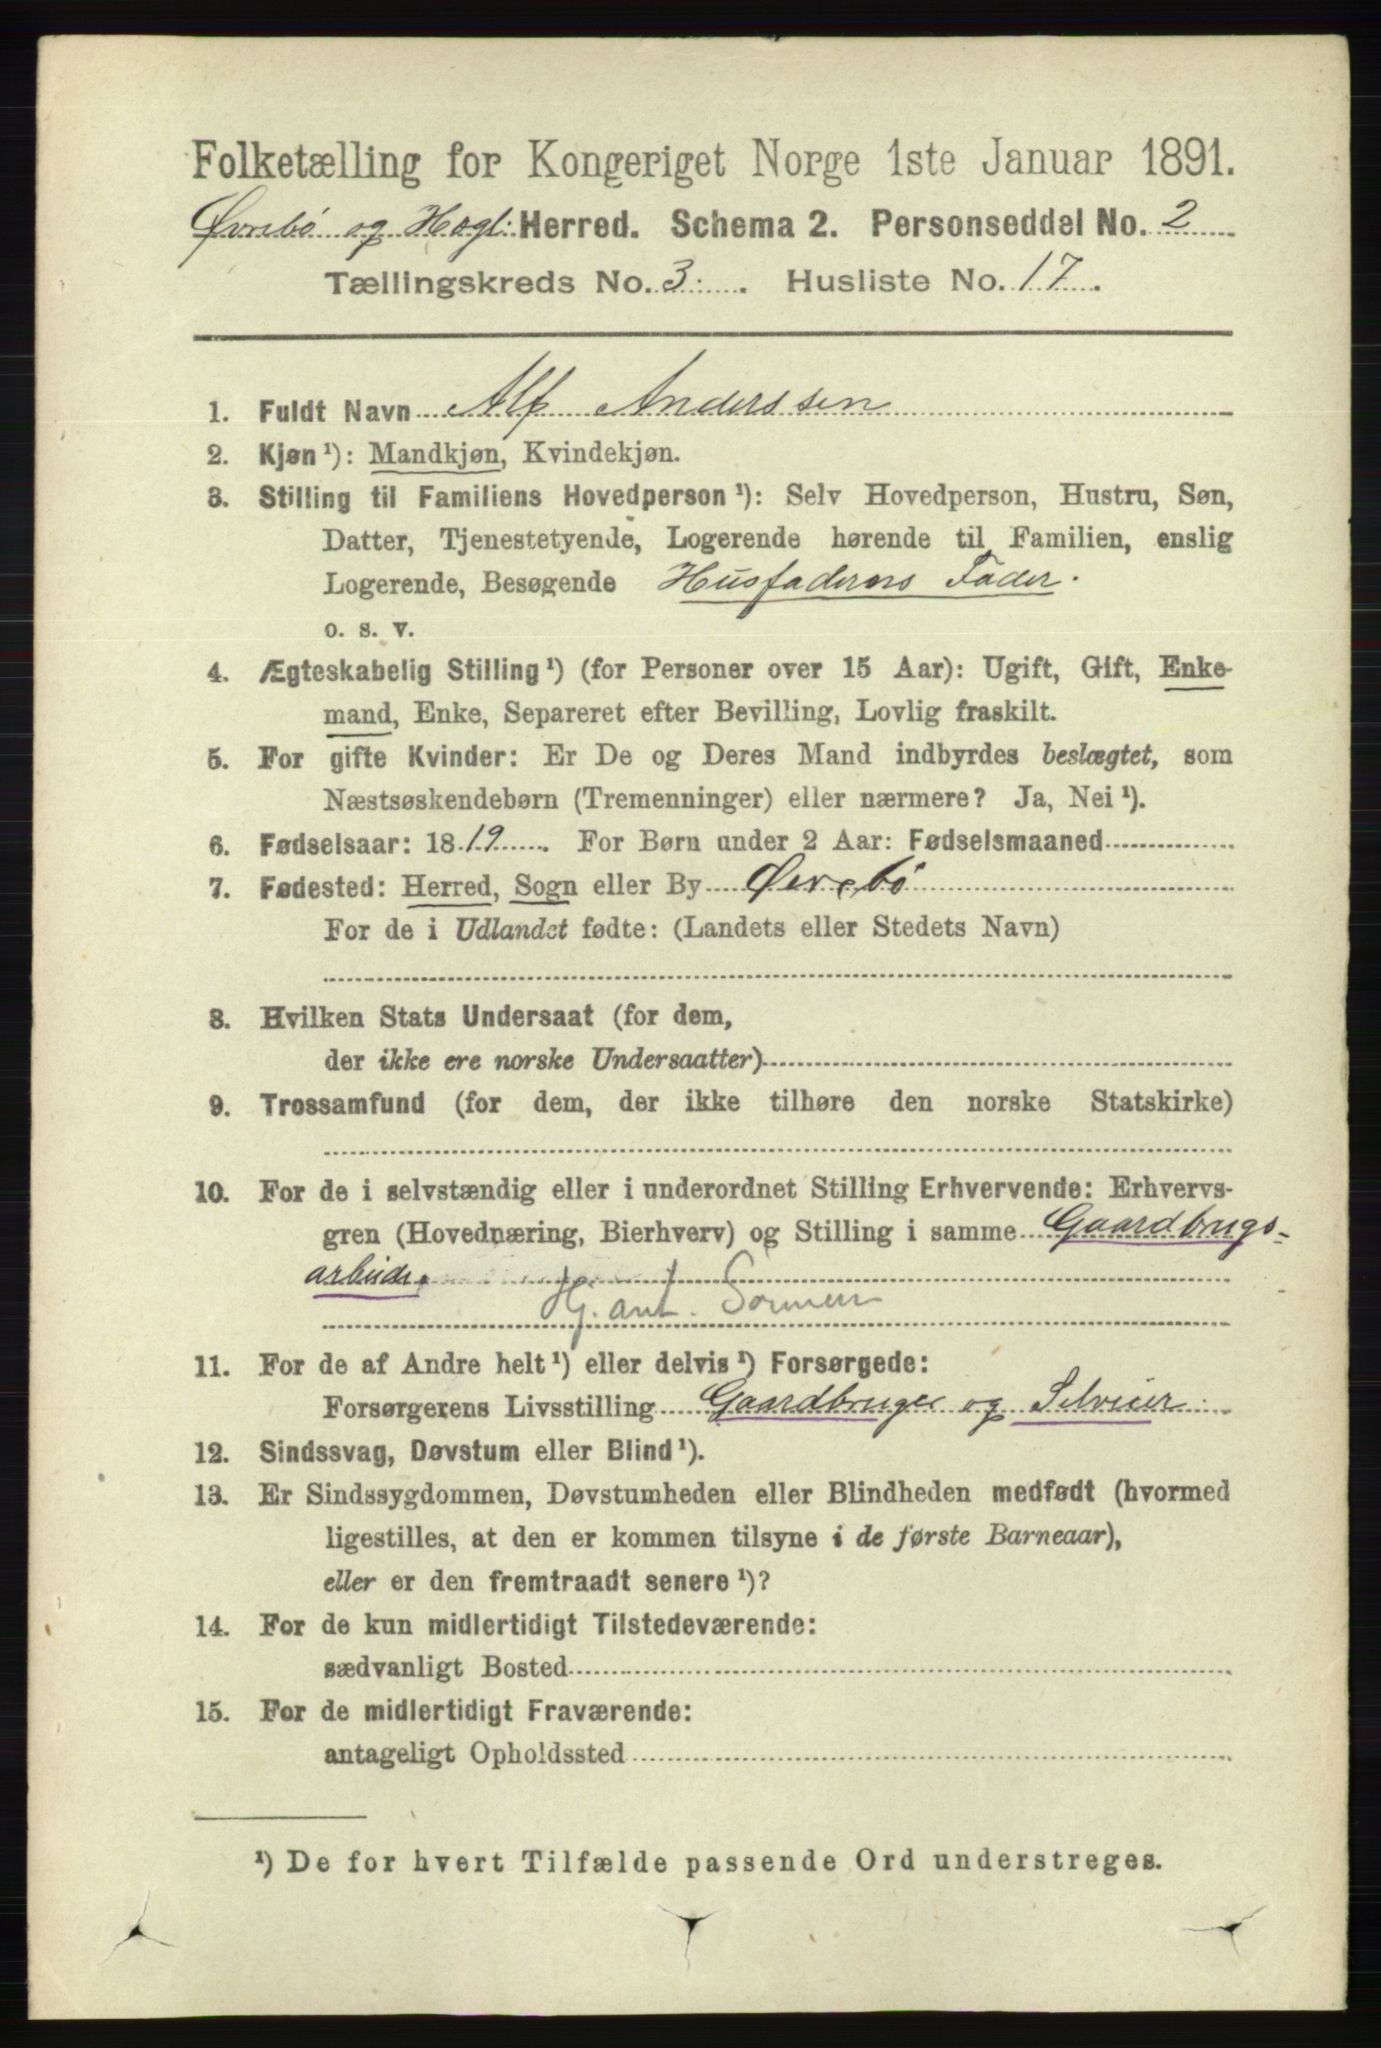 Folketælling for Kongeriget Norge 1ste Januar 1891.
Øvrebö og Hægl: Herred. Schema 2. Personseddel No. 2
Tællingskreds No. 3. Husliste No. 17.
1. Fuldt Navn Alf Anderssen
2. Kjøn ¹): Mandkjøn, Kvindekjøn.
3. Stilling til Familiens Hovedperson ¹): Selv Hovedperson, Hustru, Søn,
Datter, Tjenestetyende, Logerende hørende til Familien, enslig
Logerende, Besøgende Husfaderens Fader.
o. s. v.
4. Ægteskabelig Stilling ¹) (for Personer over 15 Aar): Ugift, Gift, Enke-
mand, Enke, Separeret efter Bevilling, Lovlig fraskilt.
5. For gifte Kvinder: Er De og Deres Mand indbyrdes beslægtet, som
Næstsøskendebørn (Tremenninger) eller nærmere? Ja, Nei ¹).
6. Fødselsaar: 1819. For Børn under 2 Aar: Fødselsmaaned
7. Fødested: Herred, Sogn eller By Øvrebö
For de i Udlandet fødte: (Landets eller Stedets Navn)
8. Hvilken Stats Undersaat (for dem,
der ikke ere norske Undersaatter)
9. Trossamfund (for dem, der ikke tilhøre den norske Statskirke)
10. For de i selvstændig eller i underordnet Stilling Erhvervende: Erhvervs-
gren (Hovednæring, Bierhverv) og Stilling i samme Gaardbrugs-
arbeide.
Hj. ant. Sønnen
11. For de af Andre helt ¹) eller delvis ¹) Forsørgede:
Forsørgerens Livsstilling Gaardbruger og Selveier.
12. Sindssvag, Døvstum eller Blind ¹).
13. Er Sindssygdommen, Døvstumheden eller Blindheden medfødt (hvormed
ligestilles, at den er kommen tilsyne i de første Barneaar),
eller er den fremtraadt senere ¹)?
14. For de kun midlertidigt Tilstedeværende:
sædvanligt Bosted
15. For de midlertidigt Fraværende:
antageligt Opholdssted
¹) De for hvert Tilfælde passende Ord understreges.